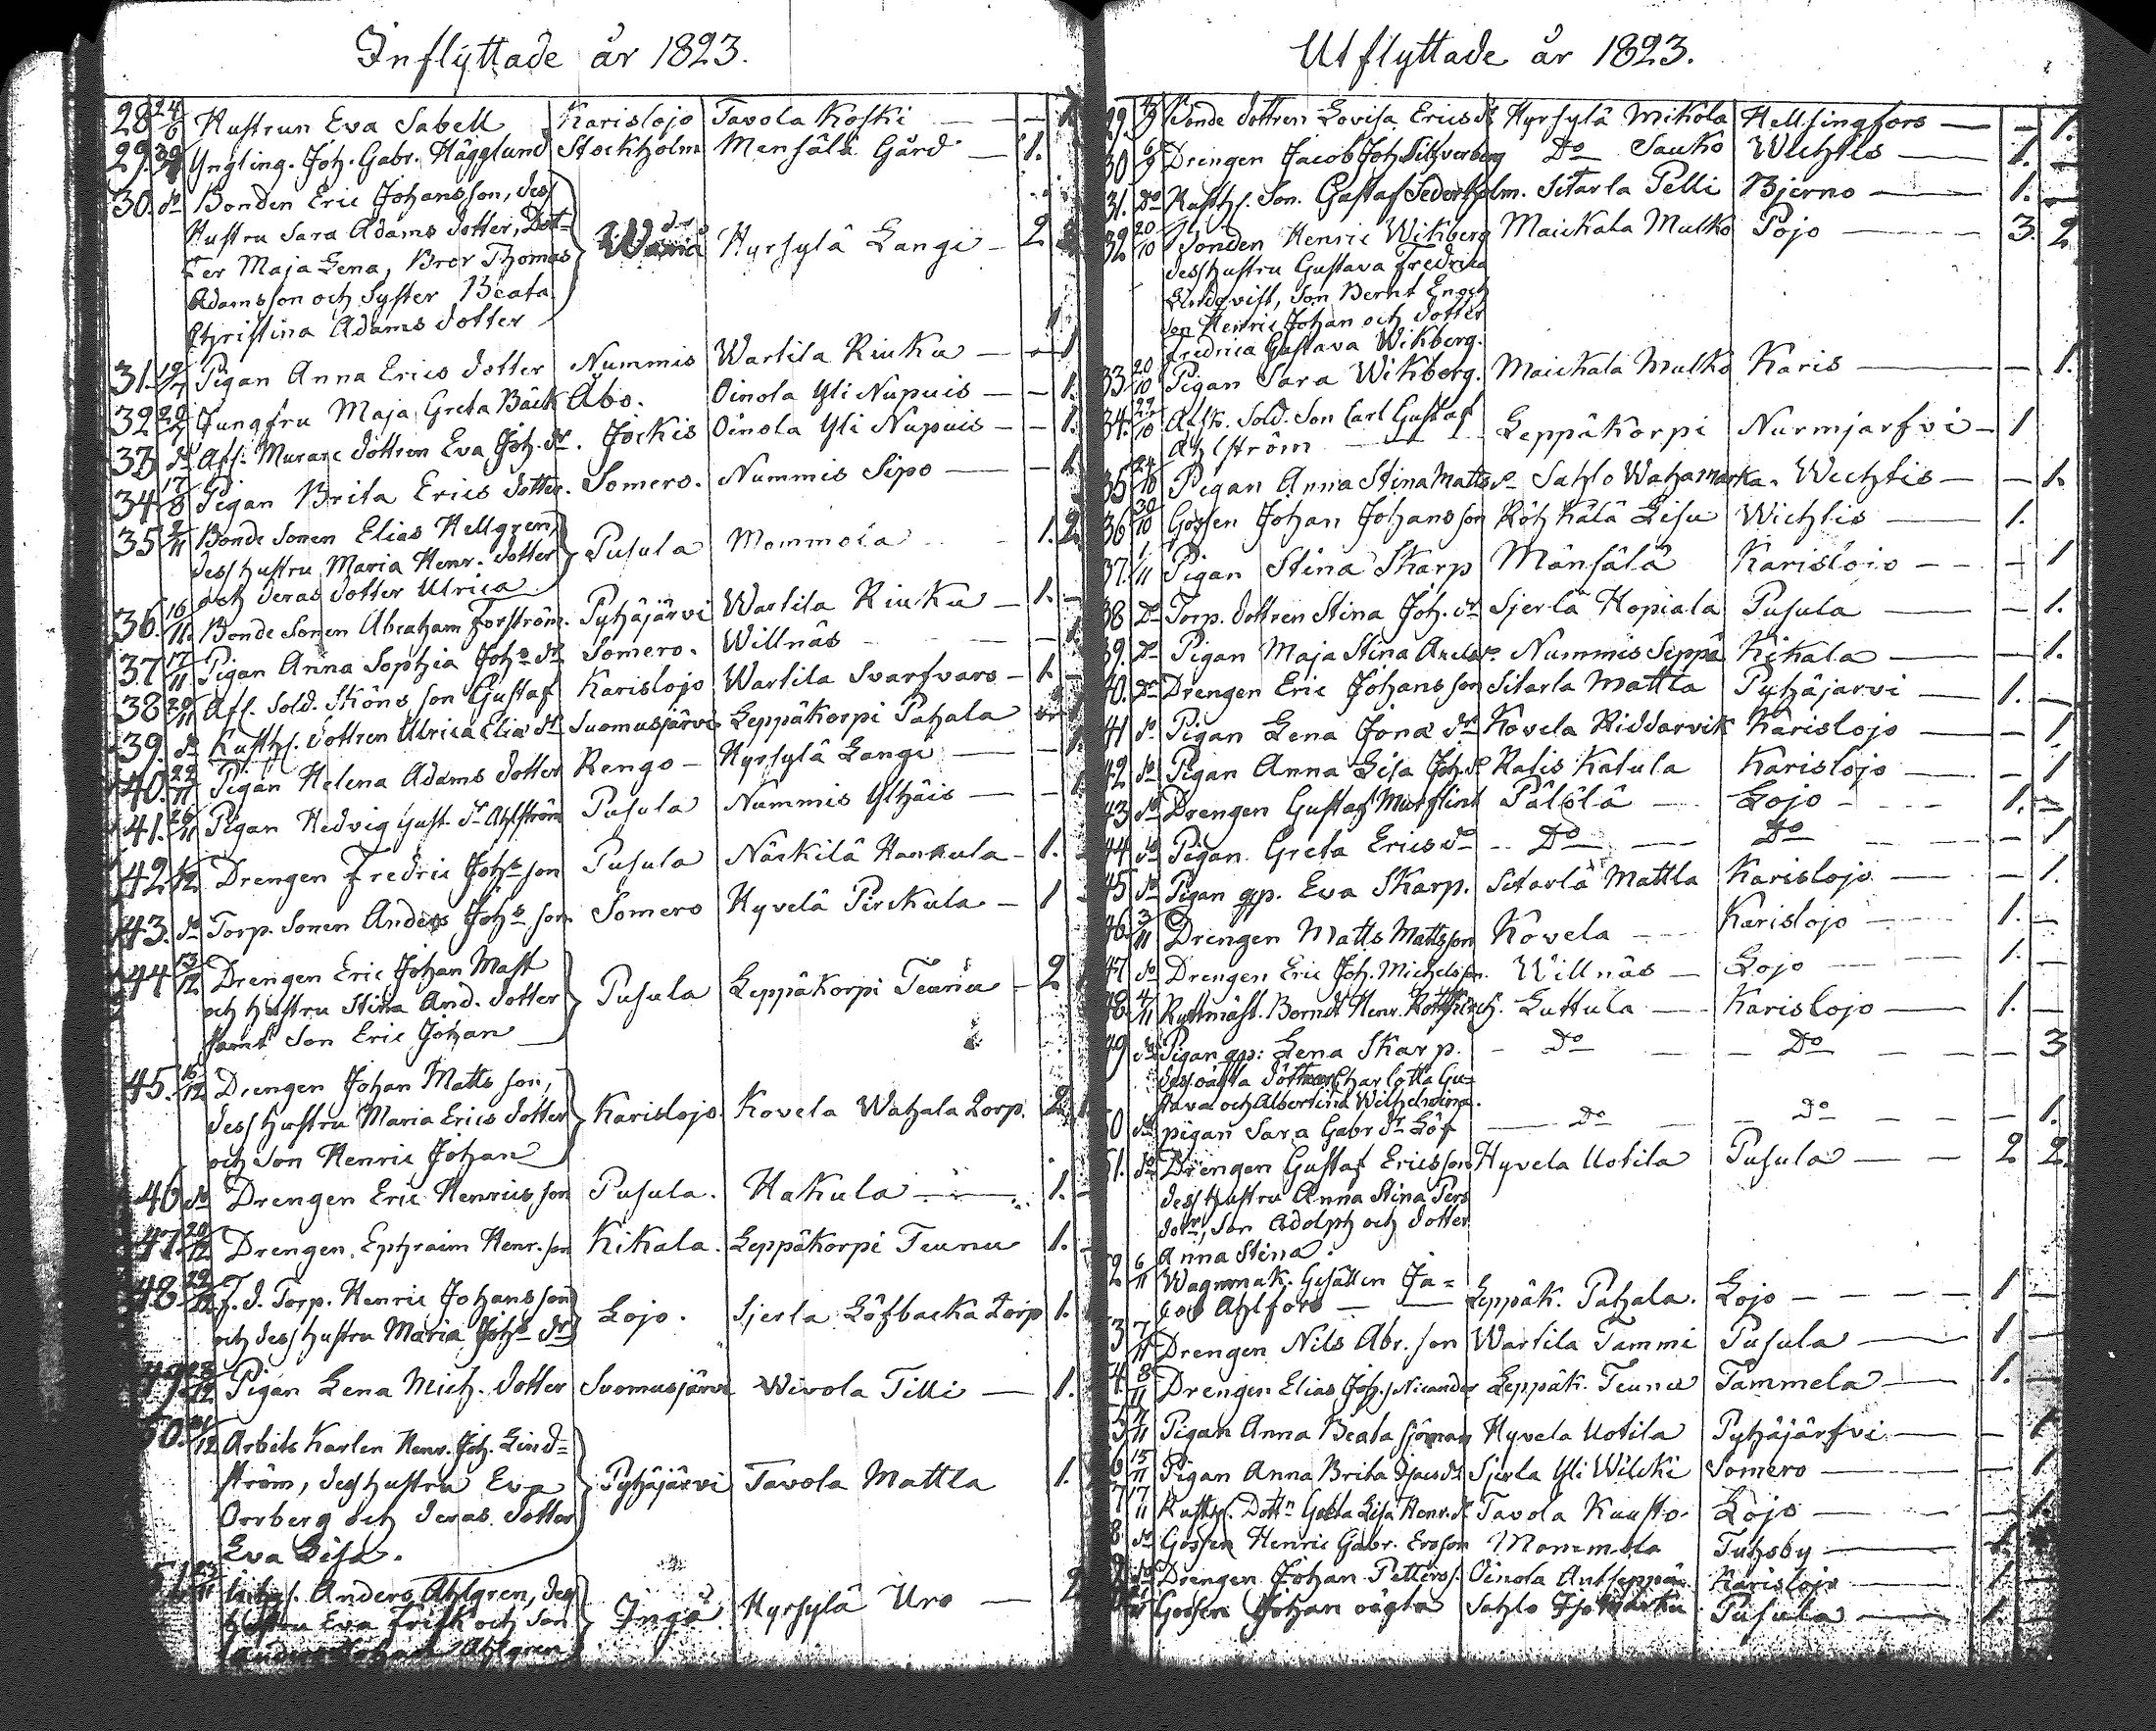 Inflyttade år 1823.
28 24/6 Hustrun Eva Sabell Karislojo Tavola Koski — — 1
29. Yngling. Joh. Gabr. Hägglund Stockholm Mensälä Gård — 1.
30. do Bonden Eric Johansson, dess
Hustru Sara Adams dotter, Dot=
ter Maja Lena, Bror Thomas Hyrsylä Langi — 2
Adamsson och Syster Beata
Christina Adams dotter
31. 19/7 Pigan Anna Erics dotter Nummis Wartila Riuku — — 1
32 29/7 Jungfru Maja Greta Bäck Åbo. Oinola Yli Nupuis — — 1.
33 do Afs. Murare dottren Eva Joh. dr. Jockis Oinola Yli Nupuis — — 1.
34 17/8 Pigan Brita Erics dotter. Somero. Nummis Sipo — — 1.
35 2/11 Bonde Sonen Elias Hellgren,
dess hustru Maria Henr. dotter Pusula Mommola — 1. 2.
och deras dotter Ulrica
36. 16/11. Bonde Sonen Abraham Forström. Pyhäjärvi Wartila Riuku — 1. —
37 17/11 Pigan Anna Sophia Johs dr Somero. Willnäs — — 1.
38 20/11 Afs. Sold. Sköns son Gustaf Karislojo Wartila Svarfvars — 1. —
39. do Rusth. dottren Ulrica Elia dr Suomusjärvi Leppäkorpi Pahala
40. 22/11 Pigan Helena Adams dotter Rengo — Hyrsylä Lange — — 1.
41. 26/11 Pigan Hedvig Gust. dr Ahlström Pusula Nummis Ylhäis — — 1
42 Drengen Fredric Johs son Pusula Näckilä Hankula — 1.
43. do Torp. Sonen Anders Johs son. Somero Hyvelä Pirckula — 1 —
44 13/12 Drengen Eric Johan Mast
och hustru Stina And. dotter Pusula Leppäkorpi Teunu — 2
samt Son Eric Johan
45. 16/12 Drengen Johan Matts son,
dess hustru Maria Erics dotter Karislojo Kovela Wahala Torp. 2
och son Henric Johan
46 do Drengen Eric Henrics son Pusula. Hakula — 1. —
47. 20/12 Drengen Ephraim Henr. son Kikala. Leppäkorpi Teunu 1. —
48. 22/12 F.d. Torp. Henric Johansson
och dess hustru Maria Johs dr Lojo. Sjerla Löfbacka Torp 1.
49. 23/12 Pigan Lena Mich. dotter Suomusjärvi Wivola Tilli — 1.
50. 12 Arbets Karlen Henr. Joh. Lind=
ström, dess hustru Eva Pyhäjärvi Tavola Mattla 1.
Orrberg och deras dotter
Eva Lisa.
Anders Ahlgren, dess
hustru Eva Frisk och Son Ingå Hyrsylä Uro — 2
Ahlgren
Utflyttade år 1823.
29. Bonde dottren Lovisa Erics dr Hyrsylä Mikola Hellsingfors — — 1.
30 6/9 Drengen Jacob Joh. Silfverberg Do Sauko Wichtis — 1. —
31. Do Rusth. Son. Gustaf Sederholm. Sitarla Pelli Bjerno — 1. —
32 20/10 Bonden Henric Wikberg Maickala Mulko Pojo — 3. 2
dess hustru Gustava Fredrica
Lindqvist, Son Bernt Enoch
Son Henric Johan och dotter
Fredrica Gustava Wikberg.
33 20/10 Pigan Sara Wikberg. Maickala Mulko Karis — — 1.
34. 22/10 Afsk. Sold. Son Carl Gustaf
Ahlström — Leppäkorpi Nurmjarfvi — 1
35 24/10 Pigan Anna Stina Matts dr Sahlo Wahamarka. Wichtis — — 1.
36 30/10 Gossen Johan Johansson Röhkälä Lisu Wichtis — 1.
37. 1/11 Pigan Stina Skarp Mänsälä Karislojo — — 1
38 Do Torp. dottren Stina Joh. dr Sjerlä Hopiala Pusula — — 1.
39. Do Pigan Maja Stina Nummis Seppä Kikala — — 1.
40. Do Drengen Eric Johansson Sitarla Mattla Pyhäjarvi — 1. —
41 do Pigan Lena Jona dr Kovela Riddarvik Karislojo — — 1
42 do Pigan Anna Lisa Joh. dr Ratis Katula Karislojo — — 1
43 do Drengen Gustaf Murflint Pälölä — Lojo — 1. —
44 do Pigan Greta Erics dr — Do — Do — — 1
45 do Pigan qp. Eva Skarp. Sitarlä Mattla Karislojo — — 1.
46 3/11 Drengen Matts Mattsson Kovela — Karislojo — 1. —
47 do Drengen Eric Joh. Michelsson. Willnäs — Lojo — 1. —
48 4/11 Ryttmäst. Berndt Henr. Rottkirch. Luttula — Karislojo — 1. —
49 do Pigan qp: Lena Skarp. — Do — Do — — 3
dess oägta döttrar Charlotta Gu=
stava och Albertina Wilhelmina.
0 do pigan Sara Gabr dr Löf — Do — Do — — 1.
51. do Drengen Gustaf Ericsson Hyvela Uotila Pusula — — 2 2.
dess hustru Anna Stina Pers
dotr, Son Adolph och dotter
Anna Stina.
2 6/11 Wagnmak. Gesällen Ja=
cob Ahlfors — Leppäk. Pahala. Lojo — 1 —
3 7/11 Drengen Nils Abr. son Wartila Tammi Pusula — 1 —
4 8/11 Drengen Elias Joh. Nicander Leppäk. Teunu Tammela — 1. —
5 Pigan Anna Beata Sjöman Hyvela Uotila Pyhäjärfvi — — 1
6 15/11 Pigan Anna Brita Isacs dr Sjerla Yli Wilcki Somero — — 1
7 17/11 Rusth. Dottn Greta Lisa Henr. dr Tavola Kuusto. Lojo — — 1
8 do Gossen Henric Gabr. Ersson Mommola Tuhsby — 1
9 do Drengen Johan Petters. Oinola Antseppä Karislojo — 1 —
Gossen Johan oägta Sahlo Pusula — 1 —